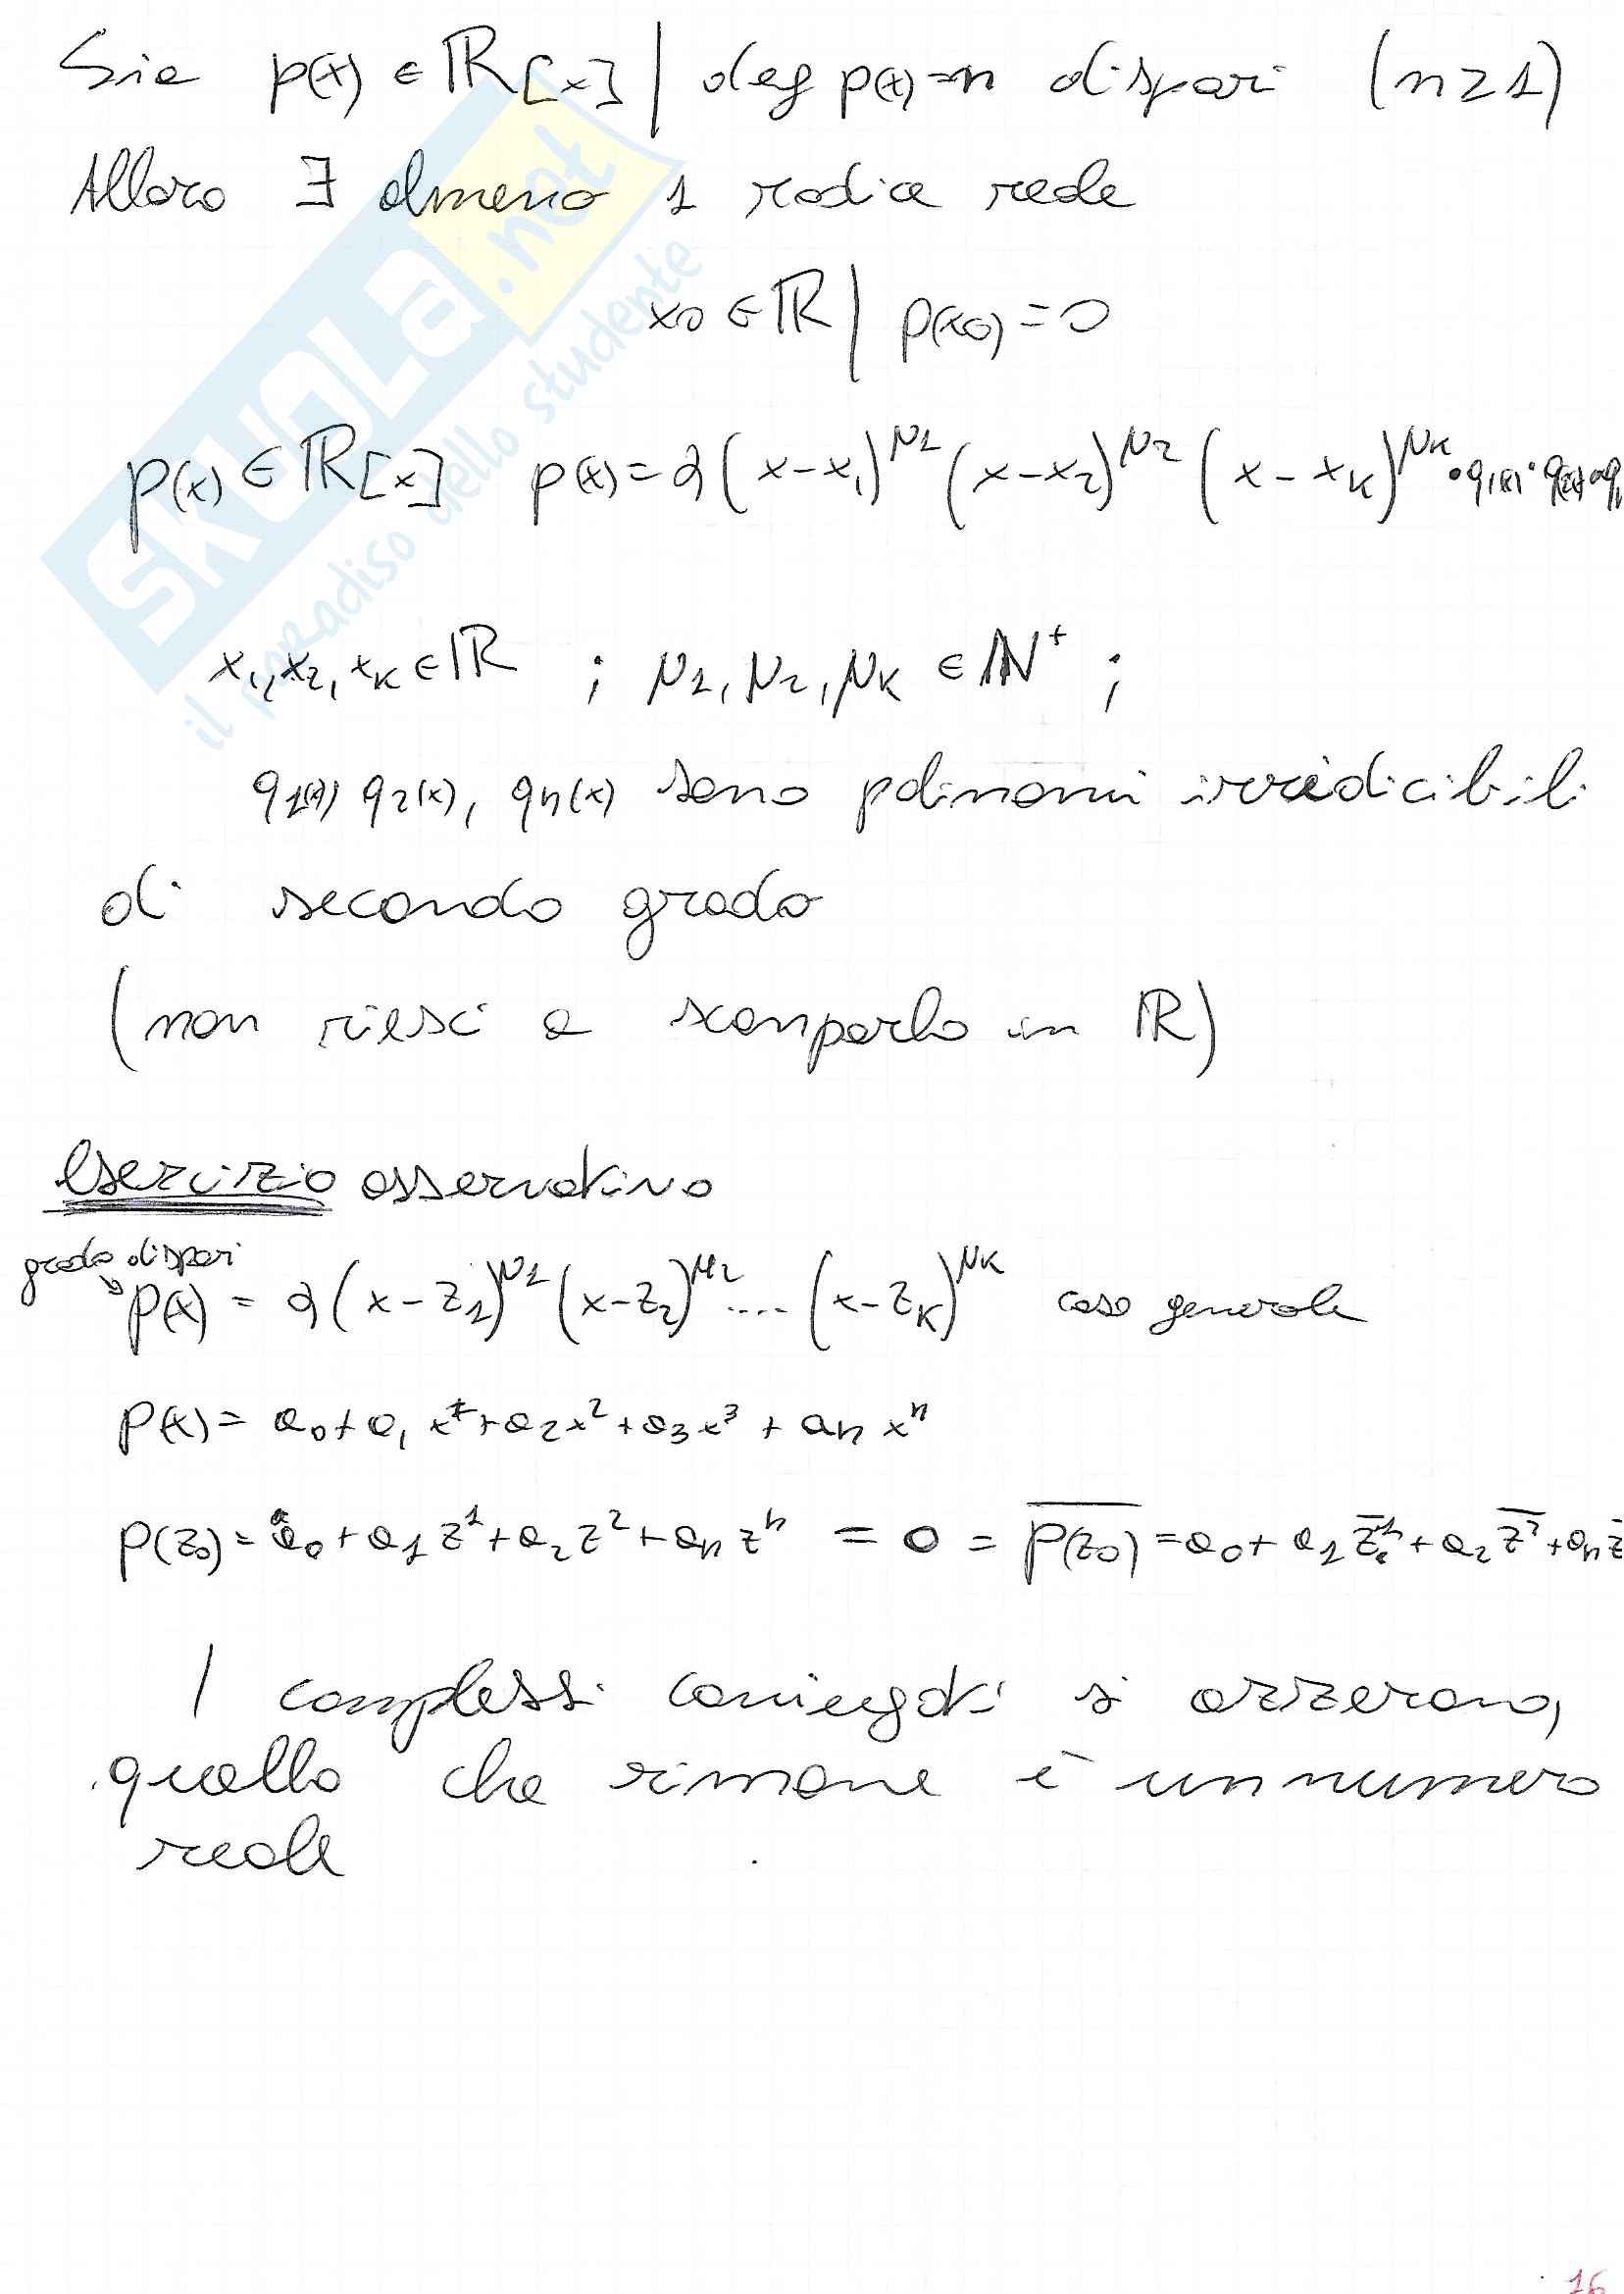 Sia p(x) ∈ ℝ[x] | deg p(x) = n dispari (n ≥ 1)
Allora ∃ almeno 1 radice reale
x0 ∈ ℝ | p(x0) = 0
p(x) ∈ ℝ[x] p(x) = a (x-x₁)^μ1 (x-x₂)^μ2 (x-xₖ)^μk • q1(x) • q2(x) •
x₁, x₂, xₖ ∈ ℝ ; μ1, μ2, μk ∈ ℕ⁺ ;
q1(x) q2(x), qn(x) sono polinomi irriducibili
di secondo grado
(non riesci a scomporlo in ℝ)
Esercizio osservativo
grado dispari
p(x) = a (x-z₁)^μ1 (x-z₂)^μ2 .... (x-zₖ)^μk caso generale
p(x) = a₀ + a₁ x¹ + a₂x² + a₃x³ + aₙ xⁿ
p(z₀) = a₀ + a₁ z¹ + a₂ z² + aₙ zⁿ = 0 = p(z₀)‾ = a₀ + a₁ z̄¹ + a₂ z̄² + aₙ z̄
I complessi coniugati si azzerano,
quello che rimane è un numero
reale
16
SKUOLA.net
il paradiso dello studente